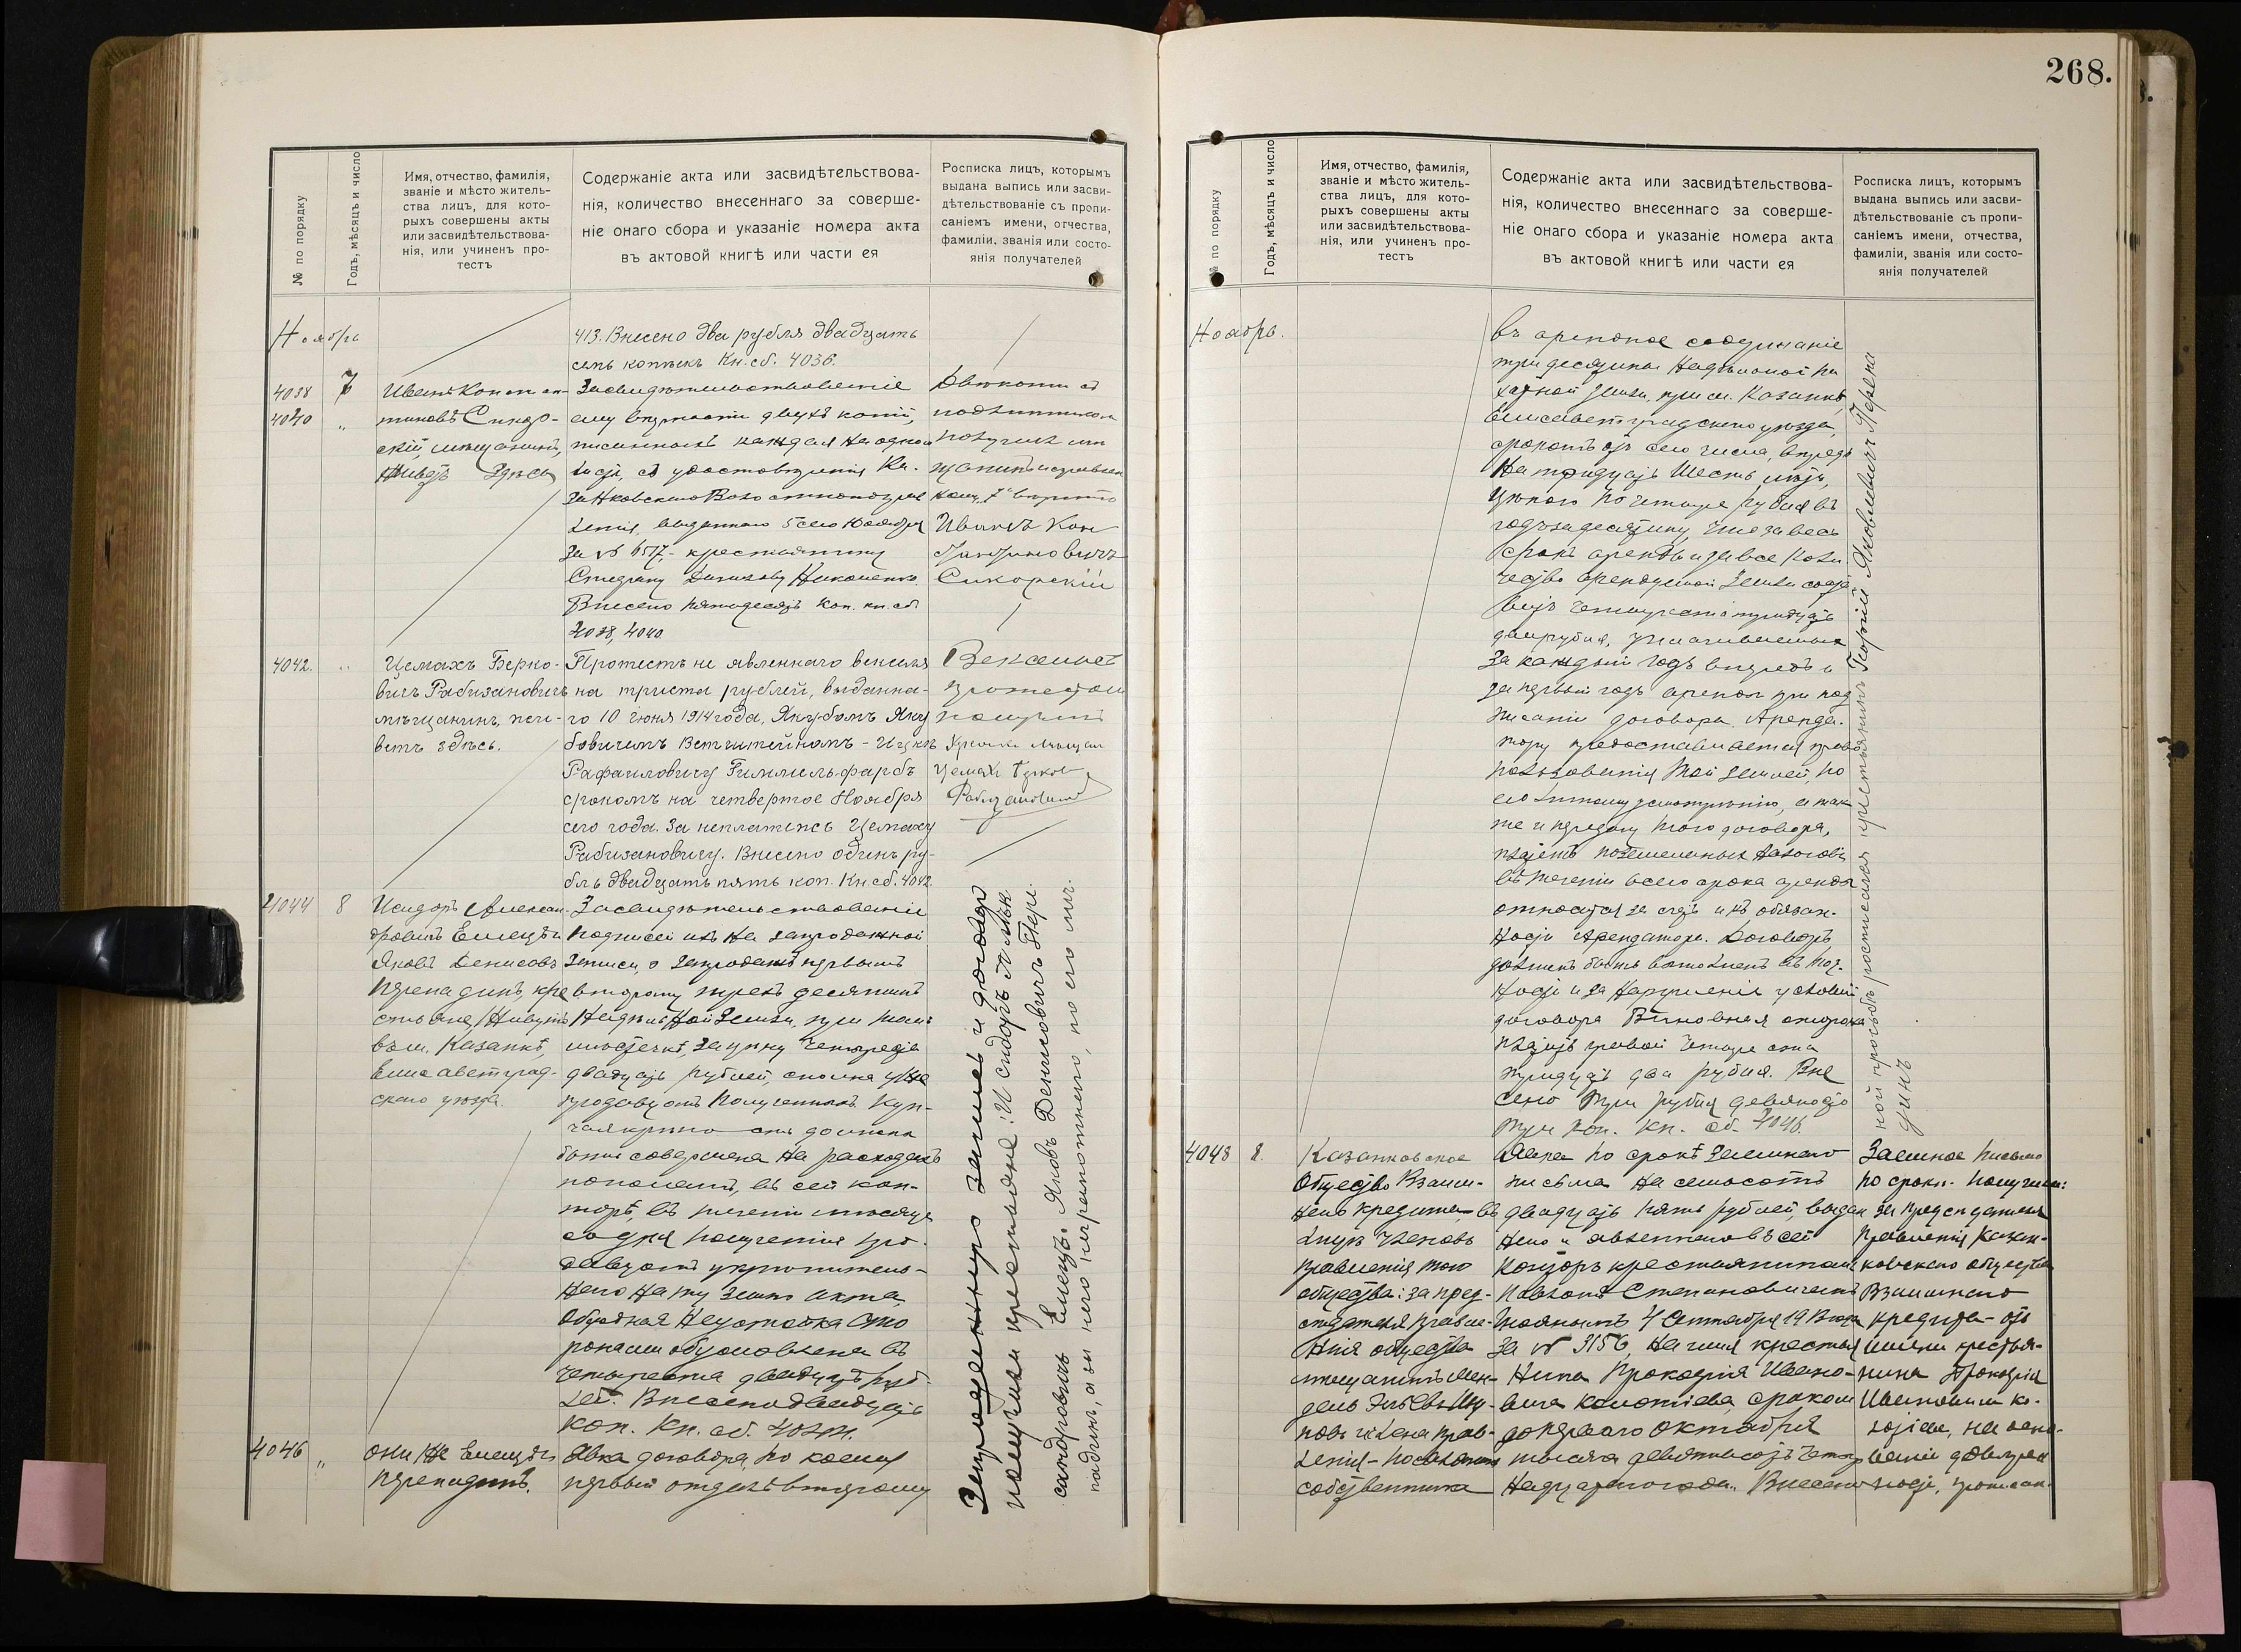 268.
№ по порядку
Годъ, мѣсяцъ и число
Имя, отчество, фамилія,
званіе и мѣсто житель-
ства лицъ, для кото-
рыхъ совершены акты
или засвидѣтельствова-
нія, или учиненъ про-
тестъ
Содержаніе акта или засвидѣтельствова-
нія, количество внесеннаго за соверше-
ніе онаго сбора и указаніе номера акта
въ актовой книгѣ или части ея
Росписка лицъ, которымъ
выдана выпись или засви-
дѣтельствованіе съ пропи-
саніемъ имени, отчества,
фамиліи, званія или состо-
янія получателей
Ноябрь
413. Внесено два рубля двадцать
семь копѣекъ Кн. сб. 4036.
4038
4040
7
„
Иванъ Констан-
тиновъ Сикор-
скій, мѣщанинъ,
живетъ здѣсь
Засвидѣтельствованіе
ему вѣрности двухъ копій,
писанныхъ каждая на одномъ
листѣ, съ удостовѣренія Ка-
занковскаго Волостного прав
ленія, выданнаго 5 сего Ноября
за № 6517, крестьянину
Стефану
Внесено пятьдесятъ коп. кн. сб.
4038, 4040
Двѣ копіи съ
подлинникомъ
получилъ мѣ
щанинъ
Иванъ Кон
стантиновичъ
Сикорскій
4042.
„
Цемахъ Берко-
вичъ Рабизановичъ
мѣщанинъ, жи-
ветъ здѣсь.
Протестъ не явленнаго векселя
на триста рублей, выданна-
го 10 іюня 1914 года, Якубомъ Яку
бовичемъ Ветштейномъ - Ицкѣ
Рафаиловичу Гиммельфарбъ
срокомъ на четвертое Ноября
сего года. За неплатежъ Цемаху
Рабизановичу. Внесено одинъ ру-
бль двадцать пять коп. Кн. сб. 4042.
Вексель съ
протестомъ
получилъ
Цемахъ Берков
Рабизановичъ
4044
8
Исидоръ Алексан-
дровичъ Емецъ и
Яковъ Денисовъ
Перепадинъ, кре
стьяне, живутъ
въ м. Казанкѣ,
Елисаветград-
скаго уѣзда.
Засвидѣтельствованіе
подписей ихъ на запродажной
записи, о запродажѣ первымъ
второму трехъ десятинъ
надѣльной земли, при томъ
мѣстечкѣ, за цѣну четыреста
двадцать рублей, сполна уже
продавцомъ полученныхъ. Куп-
чая крѣпость должна
быть совершена на расходахъ
пополамъ, въ сей кон-
торѣ, въ теченіи мѣсяца
со дня полученія про-
давцомъ укрѣпитель-
наго на ту землю акта.
Обоюдная неустойка сто
ронами обусловлена въ
четыреста двадцать руб-
лей. Внесено двадцать
коп. Кн. сб. 4044.
Запродажную запись и договоръ
получили крестьяне: Исидоръ Алек
сандровичъ Емецъ. Яковъ Денисовичъ Пере
падинъ, а за него неграмотнаго, по его лич-
4046
„
Они же Емецъ и
Перепадинъ.
Явка договора, по коему
первый отдалъ второму
№ по порядку
Годъ, мѣсяцъ и число
Имя, отчество, фамилія,
званіе и мѣсто житель-
ства лицъ, для кото-
рыхъ совершены акты
или засвидѣтельствова-
нія, или учиненъ про-
тестъ
Содержаніе акта или засвидѣтельствова-
нія, количество внесеннаго за соверше-
ніе онаго сбора и указаніе номера акта
въ актовой книгѣ или части ея
Росписка лицъ, которымъ
выдана выпись или засви-
дѣтельствованіе съ пропи-
саніемъ имени, отчества,
фамиліи, званія или состо-
янія получателей
Ноябрь.
въ арендное содержаніе
три десятины надѣльной па
хатной земли, при м. Казанкѣ,
Елисаветградскаго уѣзда,
срокомъ отъ сего числа, впредь
на тридцать шесть лѣтъ,
цѣною по четыре рубля въ
годъ за десятину, что за весь
срокъ аренды и за все коли
чество арендуемой земли соста
витъ четыреста тридцать
два рубля, уплачиваемыхъ
за каждый годъ впередъ и
за первый годъ аренды при под
писаніи договора. Аренда-
тору предоставляется право
пользованія той землей, по
его личному усмотрѣнію, а так
же и передачу того договора,
платежъ поземельныхъ налоговъ
въ теченіи всего срока аренды
относится за счетъ и къ обязан-
ности арендатора. Договоръ
долженъ быть выполненъ въ точ-
ности и за нарушеніе условій
договора виновная сторона
платитъ правой четыре ста
тридцать два рубля. Вне
сено три рубля девяносто
три коп. Кн. сб. 4046.
ной просьбѣ росписался крестьянинъ Яковлевичъ
4048
8.
Казанковское
Общество Взаим-
наго кредита, въ
лицѣ членовъ
правленія того
общества: за пред-
сѣдателя правле-
нія общества
мѣщанинъ Мен-
дель
новъ и члена прав-
ленія-поселянинъ
собственника
Явка по срокѣ заемнаго
письма на семьсотъ
двадцать пять рублей, выдан
наго и явленнаго въ сей
конторѣ крестьяниномъ
Степановичемъ
4 Сентября 1913 года
за № 3156, на имя крестья
нина Прокофія Ивано-
вича срокомъ
до перваго Октября
тысяча девятьсотъ четыр
надцатаго года. Внесено
Заемное письмо
по срокѣ. получилъ:
за предсѣдателя
Правленія Казан-
ковскаго общества
Взаимнаго
кредита - отъ
имени крестья-
нина Прокофія
Ивановича Ко-
на осно-
ваніи довѣрен
ности, прописан-